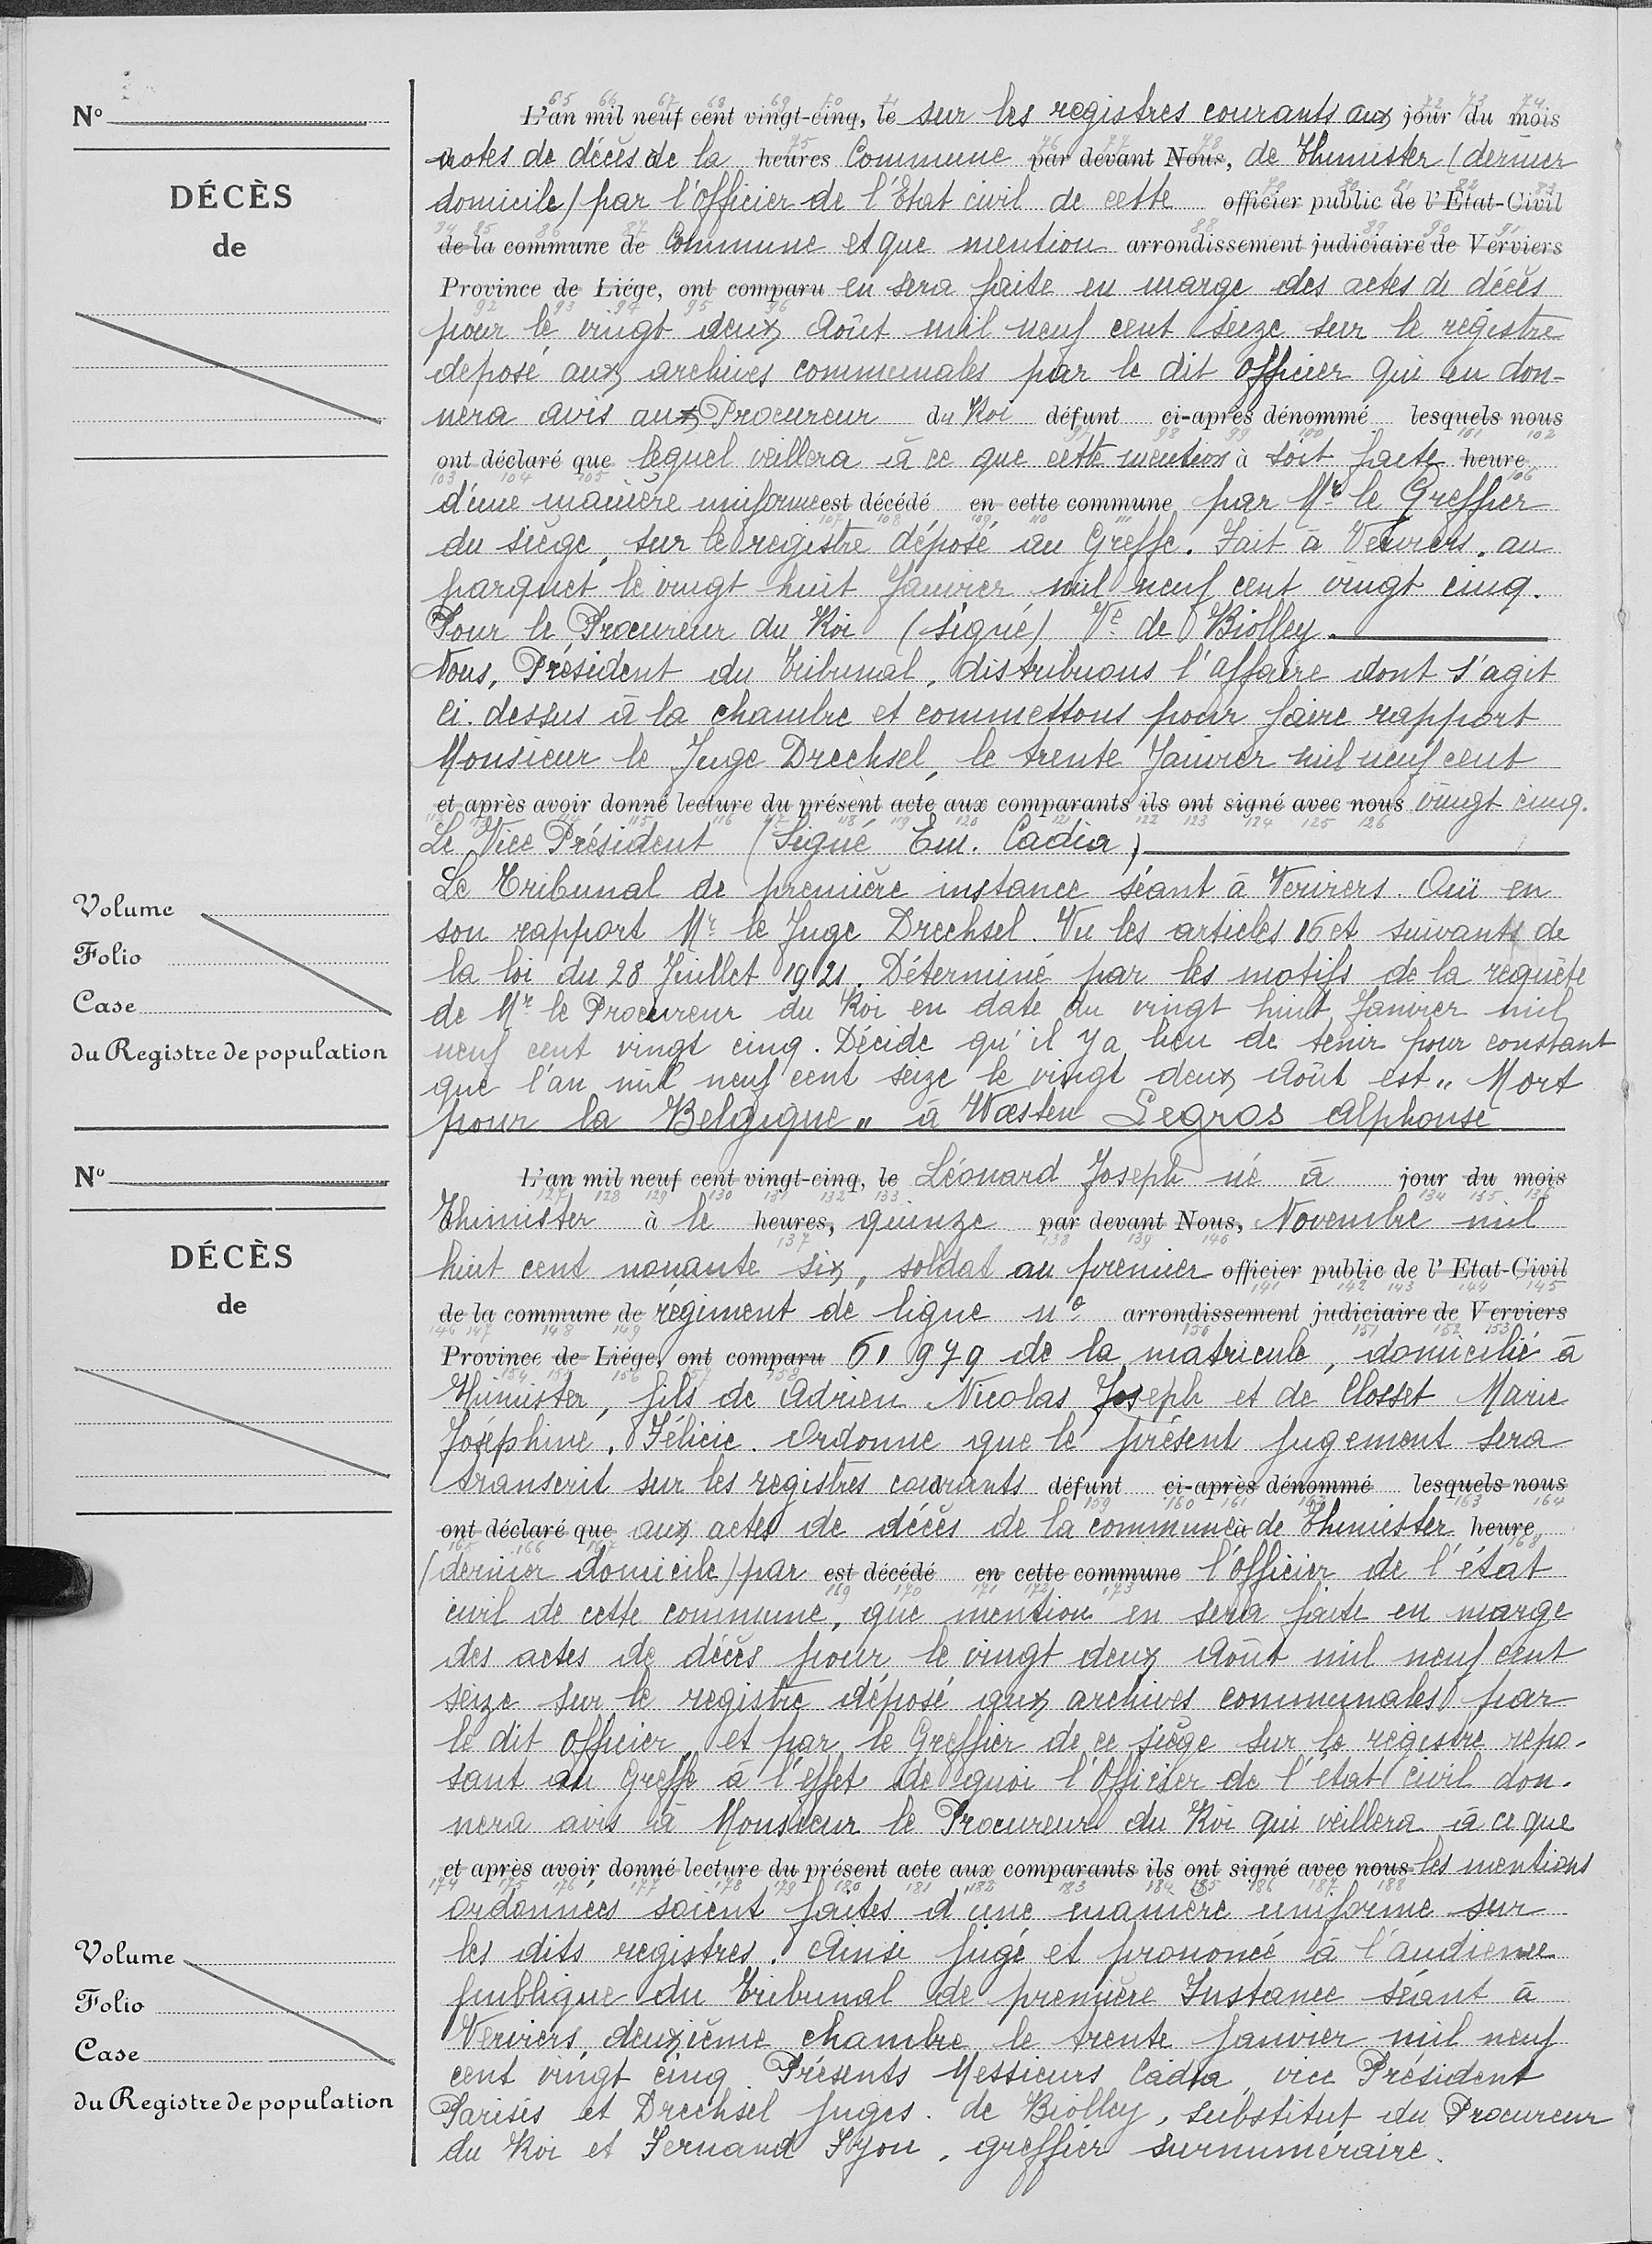 N°
DÉCÈS
de
L'an mil neuf cent vingt-cinq, le sur les registres courants aux jour du mois
actes de décès de la heures Commune par devant Nous, de Thimister (dernier
domicile) par l'officier de l'Etat civil de cette officier public de l'Etat-Civil
de la commune de Commune et que mention arrondissement judiciaire de Verviers
Province de Liége, ont comparu en sera faite en marge des actes de décès
pour le vingt deux Août mil neuf cent seize sur le registre
déposé aux archives communales par le dit officier qui en don-
nera avis aux Procureur du Roi défunt ci-après dénommé lesquels nous
ont déclaré que lequel veillera à ce que cette mention à soit faite heure
d'une manière uniforme est décédé en cette commune par Mr le Greffier
du siège, sur le registre déposé au Greffe. Fait à Verviers, au
parquet le vingt huit Janvier mil neuf cent vingt cinq.
Pour le Procureur du Roi (signé) Ve de Biolley.
Nous, Président du Tribunal, distribuons l'affaire dont s'agit
ci-dessus à la chambre et commettons pour faire rapport
Monsieur le Juge Drechsel, le trente Janvier mil neuf cent
et après avoir donné lecture du présent acte aux comparants ils ont signé avec nous vingt cinq.
Le Vice Président (Signé Em. Cadia)
Le Tribunal de première instance séant à Verviers. Ouï en
son rapport Mr le Juge Drechsel. Vu les articles 16 et suivants de
la loi du 28 Juillet 1921. Déterminé par les motifs de la requète
de Mr le Procureur du Roi en date du vingt huit Janvier mil
neuf cent vingt cinq. Décide qu'il y a lieu de tenir pour constant
que l'an mil neuf cent seize le vingt deux Août est „ Mort
pour la Belgique „ à Wœsten Legros Alphonse
Volume
Folio
Case
du Registre de population
N°
DÉCÈS
de
L'an mil neuf cent vingt-cinq, le Léonard Joseph né à jour du mois
Thimister à le heures, quinze par devant Nous, Novembre mil
huit cent nonante six, soldat au premier officier public de l'Etat-Civil
de la commune de régiment de ligne n° arrondissement judiciaire de Verviers
Province de Liége, ont comparu 61 979 de la matricule, domicilié à
Thimister, fils de Adrien Nicolas Joseph et de Closset Marie
Joséphine, Félicie. Ordonne que le présent jugement sera
transcrit sur les registres courants défunt ci-après dénommé lesquels nous
ont déclaré que aux actes de décès de la commune à de Thimister heure
(dernier domicile) par est décédé en cette commune l'officier de l'état
civil de cette commune, que mention en sera faite en marge
des actes de décès pour le vingt deux Août mil neuf cent
seize sur le registre déposé aux archives communales par
le dit officier, et par le Greffier de ce siège sur le registre repo-
sant au Greffe à l'effet de quoi l'Officier de l'état civil don-
nera avis à Monsieur le Procureur du Roi qui veillera à ce que
et après avoir donné lecture du présent acte aux comparants ils ont signé avec nous les mentions
ordonnées soient faites d'une manière uniforme sur
les dits registres. Ainsi jugé et prononcé à l'audience
publique du Tribunal de première Instance séant à
Verviers deuxième chambre le trente Janvier mil neuf
cent vingt cinq. Présents Messieurs Cadia, vice Président
Parisis et Drechsel Juges. de Biolley, substitut du Procureur
du Roi et Fernand Fyon, greffier surnuméraire.
Volume
Folio
Case
du Registre de population